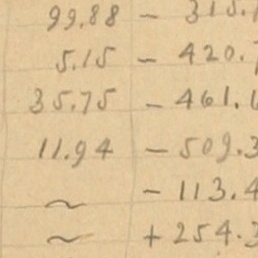 99.88 - 315.
5.15 - 420.
35.75 - 461.
11.94 - 509.3
~ - 113.4
~ + 254.3